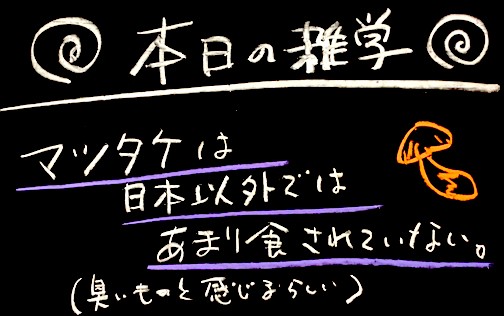 本日の雑学
マツタケは
日本以外では
あまり食されていない。
(臭いものと感じるらしい)